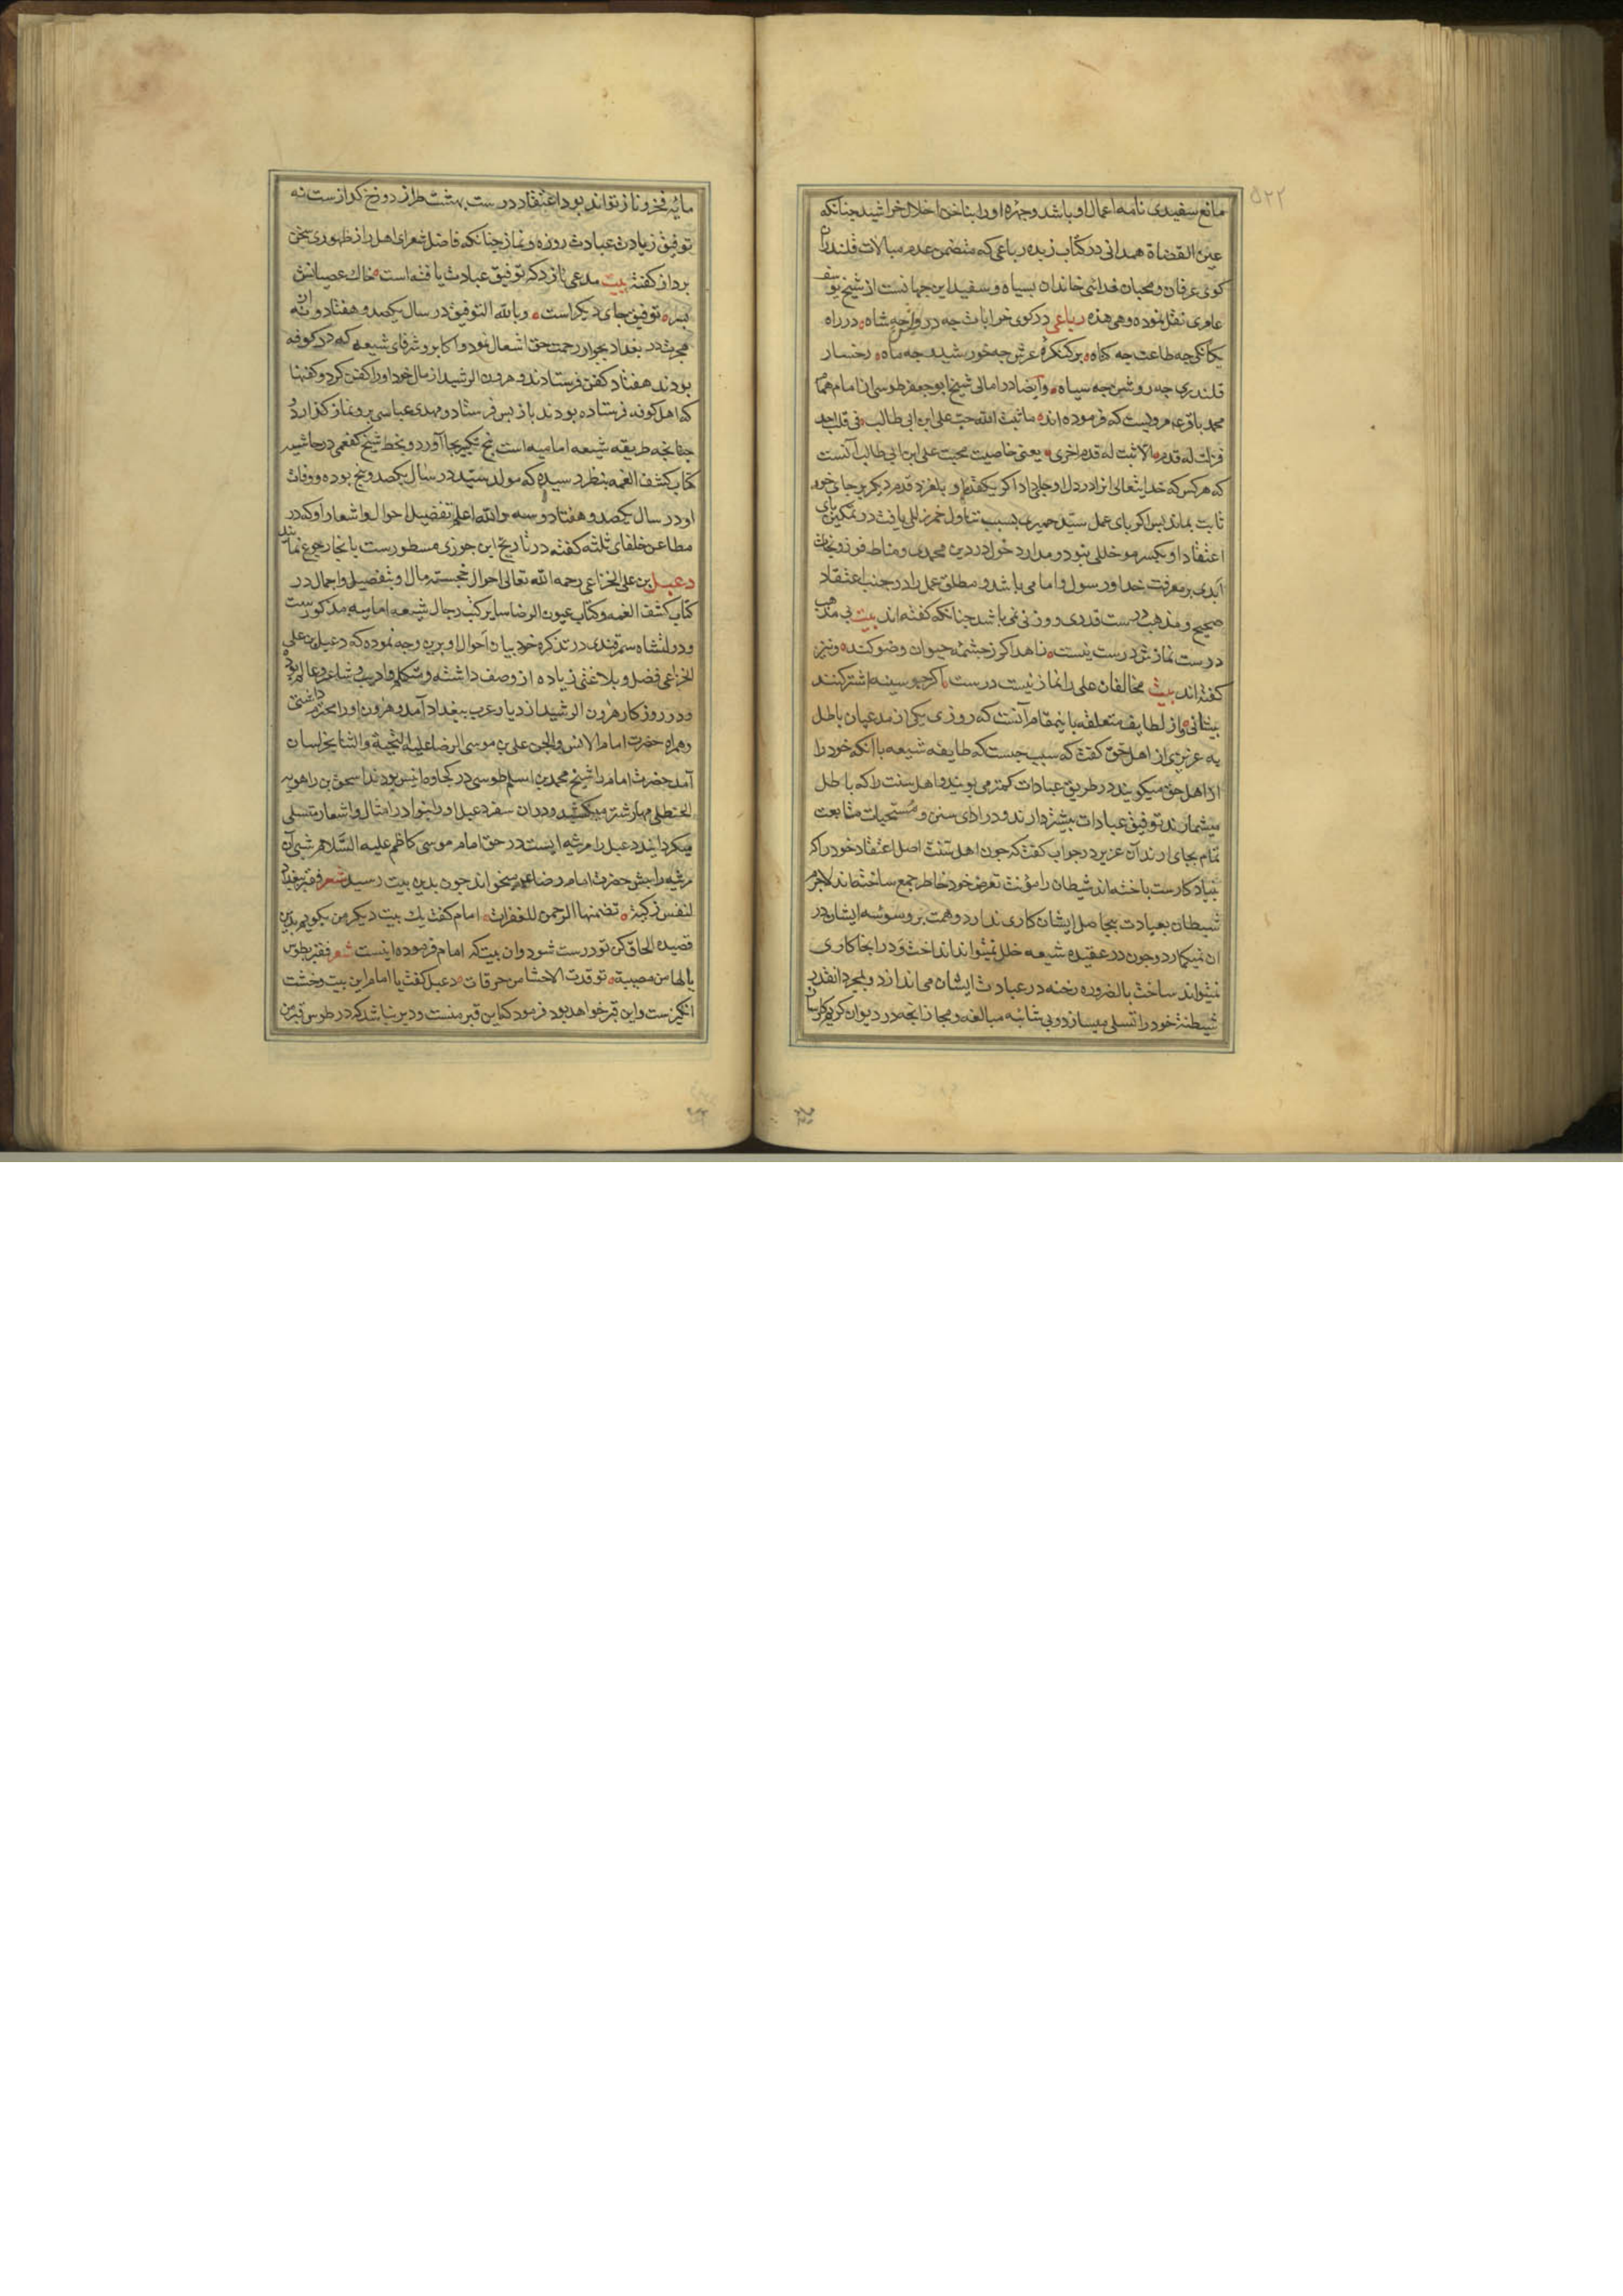 ۵۲۲
مانع سفیدی نامه اعمال او باشد و چهره او را بناخن اخلال خراشید چنانکه
عین القضاة همدانی در کتاب زبده رباعی که متضمن عدم مبالات قلندران
کوی عرفان و محبان فدائی خاندان بسیاه و سفید این جهانست از شیخ یوسف
عامری نقل نموده و هی هذه رباعی در کوی خرابات چه درویش چه شاه در راه
یکانکی چه طاعت چه کناه بر کنکره عرش چه خورشید چه ماه رخسار
قلندری چه روشن چه سیاه وایضا در امالی شیخ ابو جعفر طوسی از امام همام
محمد باقر ع مرویست که فرموده اند ما ثبت الله حب علی ابن ابی طالب فی قلب احد
فزلت له قدم الا ثبت له قدم اخری یعنی خاصیت محبت علی ابن ابی طالب آنست
که هر کس که خدایتعالی انرا در دل او جای داد اکر یکقدم او بلغزد قدم دیکر بر جای خود
ثابت بماند پس اکر بای عمل سید حمیری بسبب تناول خمر زللی یافت در تمکین بای
اعتقاد او یکسر مو خللی نبود و مدار دخول در دین محمدی و مناط فوز و نجات
ابدی بر معرفت خدا و رسول و امام می باشد و مطلق عمل را در جنب اعتقاد
صحیح و مذهب درست قدری و وزنی نمی باشد چنانکه کفته اند بیت بی مذهب
درست نمازش درست نیست زاهد اکر ز چشمه حیوان وضو کند و نیز
کفته اند بیت مخالفان علی را نماز نیست درست اکر چو سینه اشتر کنند
بیشانی و از لطایف متعلقه باینمقام آنست که روزی یکی از مدعیان باطل
به عزیزی از اهل حق کفت که سبب چیست که طایفه شیعه با آنکه خود را
از اهل حق میکویند در طریق عبادات کمتر می پویند و اهل سنت را که باطل
میشمارند توفیق عبادات بیشتر دارند و در ادای سنن و مستحبات متابعت
تمام بجای ارند آن عزیز در جواب کفت که چون اهل سنت اصل اعتقاد خود را که
بنیاد کارست باخته اند شیطان را مؤنت تعرض خود خاطر جمع ساخته اند لاجرم
شیطان بعبادت بیحاصل ایشان کاری ندارد و همت بر وسوسه ایشان در
ان نمیکمارد و چون در عقیده شیعه خلل نمیتواند انداخت و در انجا کاری
نمیتواند ساخت بالضروره رخنه در عبادت ایشان می اندازد و بمجرد انقدر
شیطنة خود را تسلی میسازد و بی شائبه مبالغه و مجاز انچه در دیوان کریم کارساز
مایه فخر و ناز تواند بود اعتقاد درست بهشت طراز دوزخ کدازست نه
توفیق زیادت عبادت روزه و نماز چنانکه فاضل شعرای اهل راز ظهوری سخن
برداز کفته بیت مدعی نازد که توفیق عبادت یافته است خاک عصیانش
بسر توفیق جای دیکر است وبالله التوفیق در سال یکصد و هفتاد و نه از
هجرت در بغداد بجوار رحمت حق اشتغال نمود و اکابر و شرفای شیعه که در کوفه
بودند هفتاد کفن فرستادند و هرون الرشید از مال خود او را کفن کرد و کفنها
که اهل کوفه فرستاده بودند باز پس فرستاد و مهدی عباسی برو نماز کذارد و
چنانچه طریقه شیعه امامیه است پنج تکبیر بجا آورد و بخط شیخ کفعمی در حاشیه
کتاب کشف الغمه بنظر رسیده که مولد سید در سال یکصد و پنج بوده و وفات
او در سال یکصد و هفتاد و سه والله اعلم تفضیل احوال و اشعار او که در
مطاعن خلفای ثلثه کفته در تاریخ ابن جوزی مسطورست بانجا رجوع نمایند
دعبل بن علی الخزاعی رحمه الله تعالی احوال خجسته مال او بتفصیل و اجمال در
کتاب کشف الغمه و کتاب عیون الرضا سایر کتب رجال شیعه امامیه مذکورست
و دولتشاه سمرقندی در تذکره خود بیان احوال او برین وجه نموده که دعبل بن علی
الخزاعی فضل و بلاغتی زیاده از وصف داشته و متکلم و ادیب و شاعر و عالم بود
و در روزکار هرون الرشید از دیار عرب ببغداد آمد و هرون او را محترم داشتی
و همراه حضرت امام الانس والجن علی بن موسی الرضا علیه التحیة والثنا بخراسان
آمد حضرت امام را شیخ محمد بن اسلم طوسی در کجاوه انیس بود ند اسحق بن راهویه
الحنظلی مهار شتر میکشید و دران سفر دعبل او را بنوادر امثال و اشعار تسلی
میکردانید دعبل را مرثیه ایست در حق امام موسی کاظم علیه السلام شبی آن
مرثیه را پیش حضرت امام رضا ع میخواند چون بدین بیت رسید شعر فقبر ببغداد
لنفس زکیة تضمنها الرحمن للغفرات امام کفت یک بیت دیکر من بکویم بدین
قصیده الحاق کن تو درست شود وان بیت که امام فرموده اینست شعر فقبر بطوس
یا لها من مصیبة توقدت الاحشا من حرقات دعبل کفت یا امام این بیت وحشت
انکیزست و این قبر خواهد بود فرمود که این قبر منست و دیر نباشد که در طوس قبر من